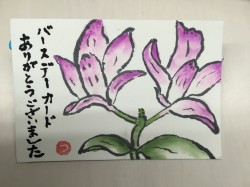 バースデーカード
ありがとうございました